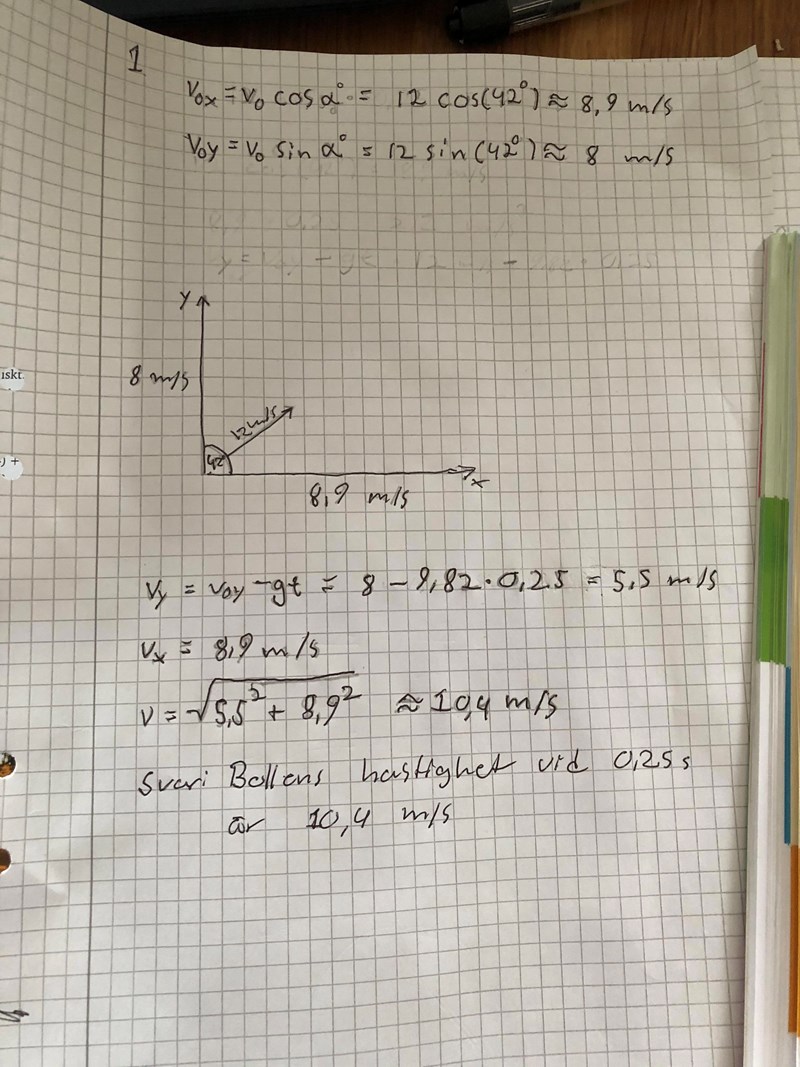 1
v₀ₓ = v₀ cos α° = 12 cos(42°) ≈ 8,9 m/s
v₀y = v₀ sin α° = 12 sin(42°) ≈ 8 m/s
y
8 m/s
iskt.
12 m/s
42
) +
x
8,9 m/s
vy = v₀y - gt = 8 - 9,82 · 0,25 = 5,5 m/s
vₓ = 8,9 m/s
v = √5,5² + 8,9² ≈ 10,4 m/s
Svar: Bollens hastighet vid 0,25 s
är 10,4 m/s